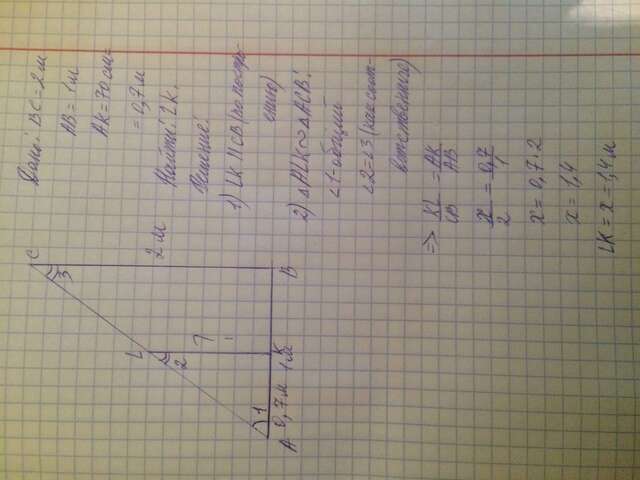 Дано: BC = 2м
AB = 1м
AK = 70см =
= 0,7м
Найти: LK.
Решение:
1) LK || CB (по постро-
ению)
2) △ALK ∾ △ACB:
∠1-общий
∠2=∠3 (как соот-
ветственные)
=> KL/CB = AK/AB
x/2 = 0,7/1
x = 0,7 · 2
x = 1,4
LK = x = 1,4м
C
3
2 м
L
2
?
1
A
0,7м
K
1м
B